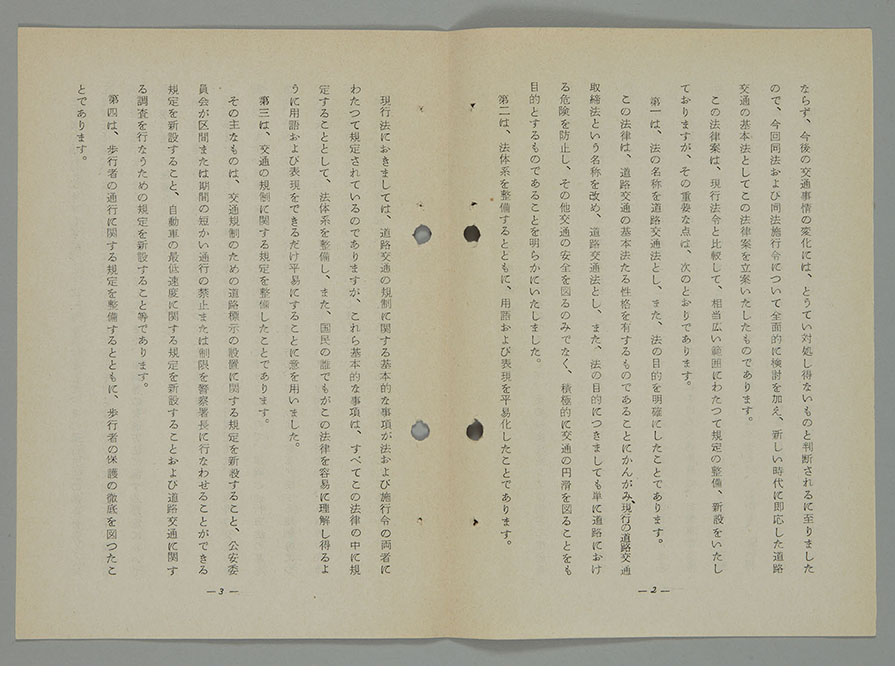 ならず、今後の交通事情の変化には、とうてい対処し得ないものと判断されるに至りました
ので、今回同法および同法施行令について全面的に検討を加え、新しい時代に即応した道路
交通の基本法としてこの法律案を立案いたしたものであります。
この法律案は、現行法令と比較して、相当広い範囲にわたつて規定の整備、新設をいたし
ておりますが、その重要な点は、次のとおりであります。
第一は、法の名称を道路交通法とし、また、法の目的を明確にしたことであります。
この法律は、道路交通の基本法たる性格を有するものであることにかんがみ、現行の道路交通
取締法という名称を改め、道路交通法とし、また、法の目的につきましても単に道路におけ
る危険を防止し、その他交通の安全を図るのみでなく、積極的に交通の円滑を図ることをも
目的とするものであることを明らかにいたしました。
第二は、法体系を整備するとともに、用語および表現を平易化したことであります。
—2—
現行法におきましては、道路交通の規制に関する基本的な事項が法および施行令の両者に
わたつて規定されているのでありますが、これら基本的な事項は、すべてこの法律の中に規
定することとして、法体系を整備し、また、国民の誰でもがこの法律を容易に理解し得るよ
うに用語および表現をできるだけ平易にすることに意を用いました。
第三は、交通の規制に関する規定を整備したことであります。
その主なものは、交通規制のための道路標示の設置に関する規定を新設すること、公安委
員会が区間または期間の短かい通行の禁止または制限を警察署長に行なわせることができる
規定を新設すること、自動車の最低速度に関する規定を新設することおよび道路交通に関す
る調査を行なうための規定を新設すること等であります。
第四は、歩行者の通行に関する規定を整備するとともに、歩行者の保護の徹底を図つたこ
とであります。
—3—